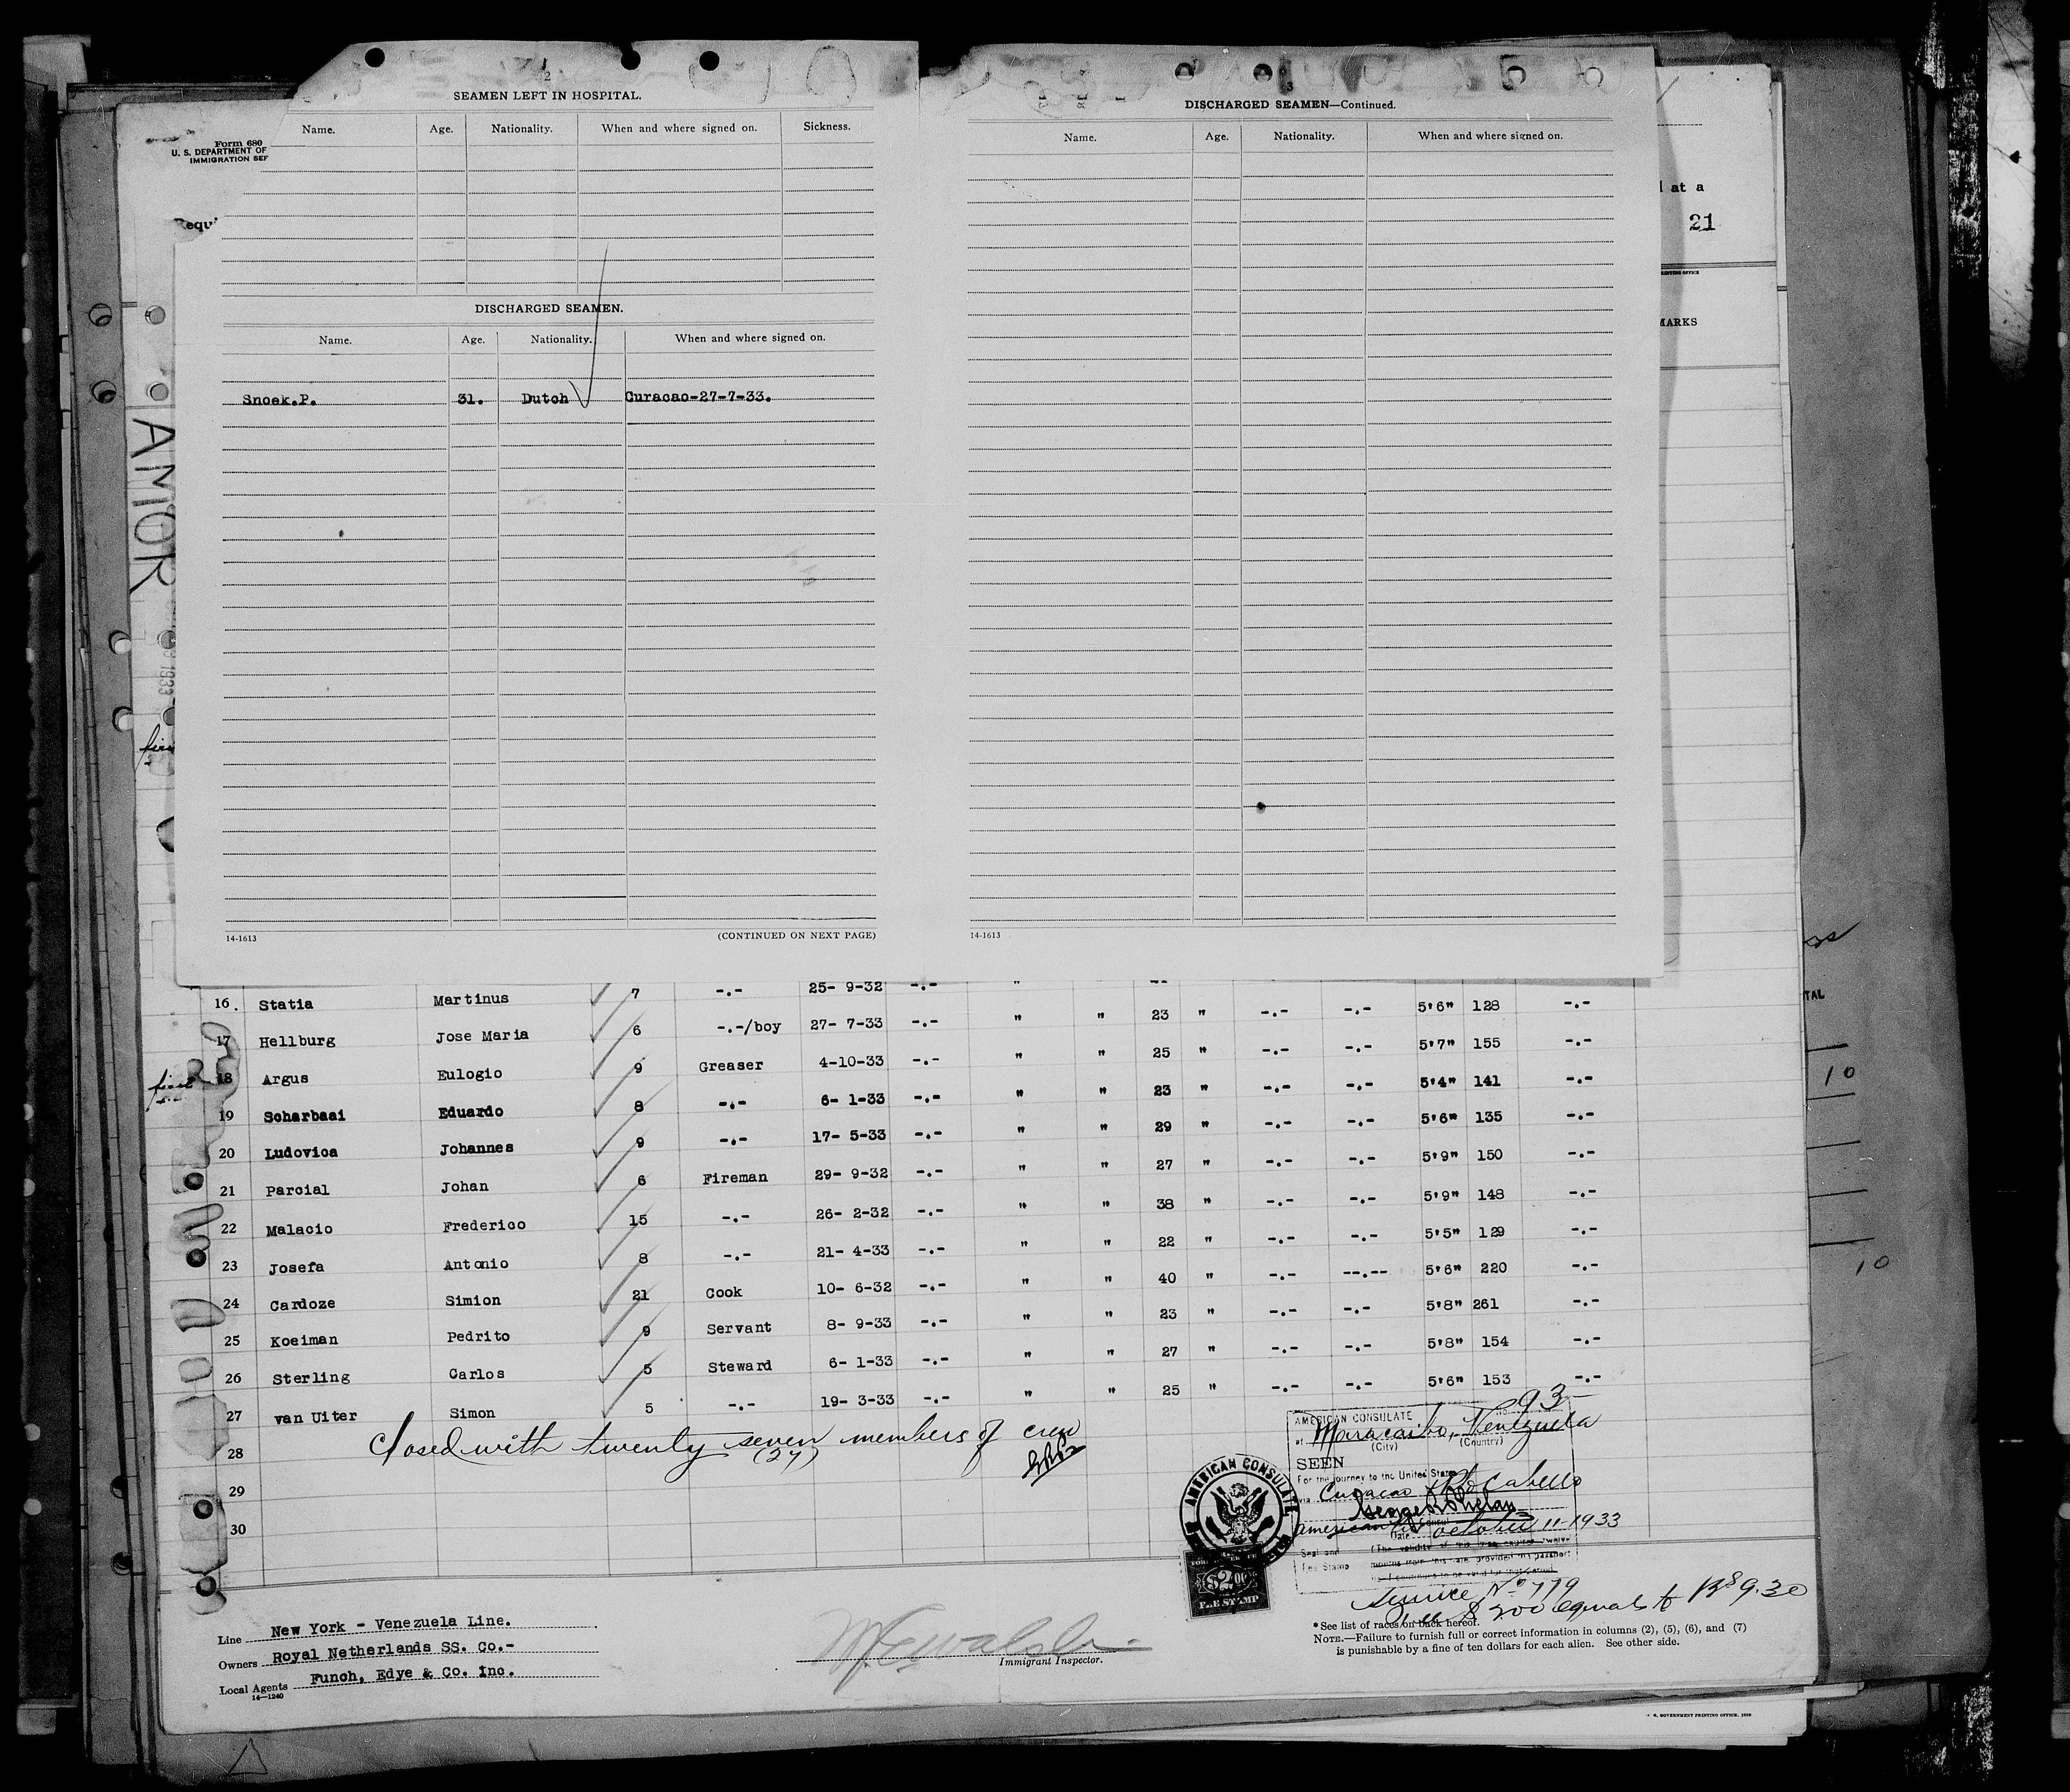 2
SEAMEN LEFT IN HOSPITAL.
Name. Age. Nationality. When and where signed on. Sickness.
Form 680
U. S. DEPARTMENT OF
IMMIGRATION SER
Requi
DISCHARGED SEAMEN.
Name. Age. Nationality. When and where signed on.
Snoek.P. 31. Dutch Curacao-27-7-33.
14-1613 (CONTINUED ON NEXT PAGE)
3
DISCHARGED SEAMEN—Continued.
Name. Age. Nationality. When and where signed on.
14-1613
at a
21
MARKS
AMOR
1933
16. Statia Martinus 7 -.- 25- 9-32 -.- " 5'6" 128 -.-
17 Hellburg Jose Maria 6 -.-/boy 27- 7-33 -.- " " 23 " -.- -.- 5'7" 155 -.-
18 Argus Eulogio 9 Greaser 4-10-33 -.- " " 25 " -.- -.- 5'4" 141 -.-
19 Scharbaai Eduardo 8 -.- 6- 1-33 -.- " " 23 " -.- -.- 5'6" 135 -.-
20 Ludovica Johannes 9 -.- 17- 5-33 -.- " " 29 " -.- -.- 5'9" 150 -.-
21 Parcial Johan 6 Fireman 29- 9-32 -.- " " 27 " -.- -.- 5'9" 148 -.-
22 Malacio Frederico 15 -.- 26- 2-32 -.- " " 38 " -.- -.- 5'5" 129 -.-
23 Josefa Antonio 8 -.- 21- 4-33 -.- " " 22 " -.- -.- 5'6" 220 -.-
24 Cardoze Simion 21 Cook 10- 6-32 -.- " " 40 " -.- --.-- 5'8" 261 -.-
25 Koeiman Pedrito 9 Servant 8- 9-33 -.- " " 23 " -.- -.- 5'8" 154 -.-
26 Sterling Carlos 5 Steward 6- 1-33 -.- " " 27 " -.- -.- 5'6" 153 -.-
27 van Uiter Simon 5 -.- 19- 3-33 -.- " " 25 " -.- -.-
28 Closed with twenty seven members of crew
(27)
29
30
10
10
93
AMERICAN CONSULATE
at Maracaibo, Venezuela
(City) (Country)
SEEN
For the journey to the United States
via Curacao Pto Cabello
George R Phelan
American
Date October 11 1933
Seal and
Fee Stamp
(The validity of this visa expires twelve
months from this date provided the passport
continues to be valid for that period)
AMERICAN CONSULATE
$2.00
FEE STAMP
Service No 779
$2.00 equals to Bs 9.30
*See list of races on back hereof.
NOTE.—Failure to furnish full or correct information in columns (2), (5), (6), and (7)
is punishable by a fine of ten dollars for each alien. See other side.
Line New York - Venezuela Line.
Owners Royal Netherlands SS. Co.-
Local Agents Funch, Edye & Co. Inc.
14-1240
Immigrant Inspector.
GOVERNMENT PRINTING OFFICE